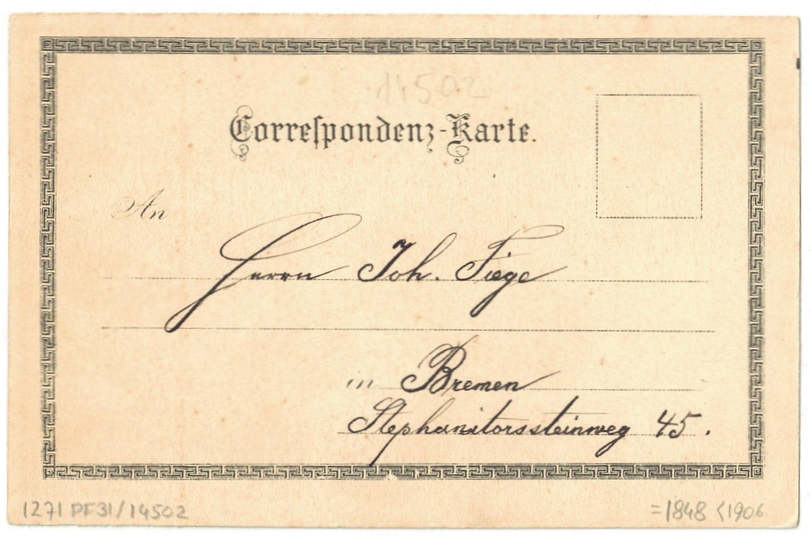 14502
Correſpondenz-Karte.
An
Herrn Joh. Fiege
in Bremen
Stephanitorssteinweg 45.
1271 PF31/14502
=1848 <1906